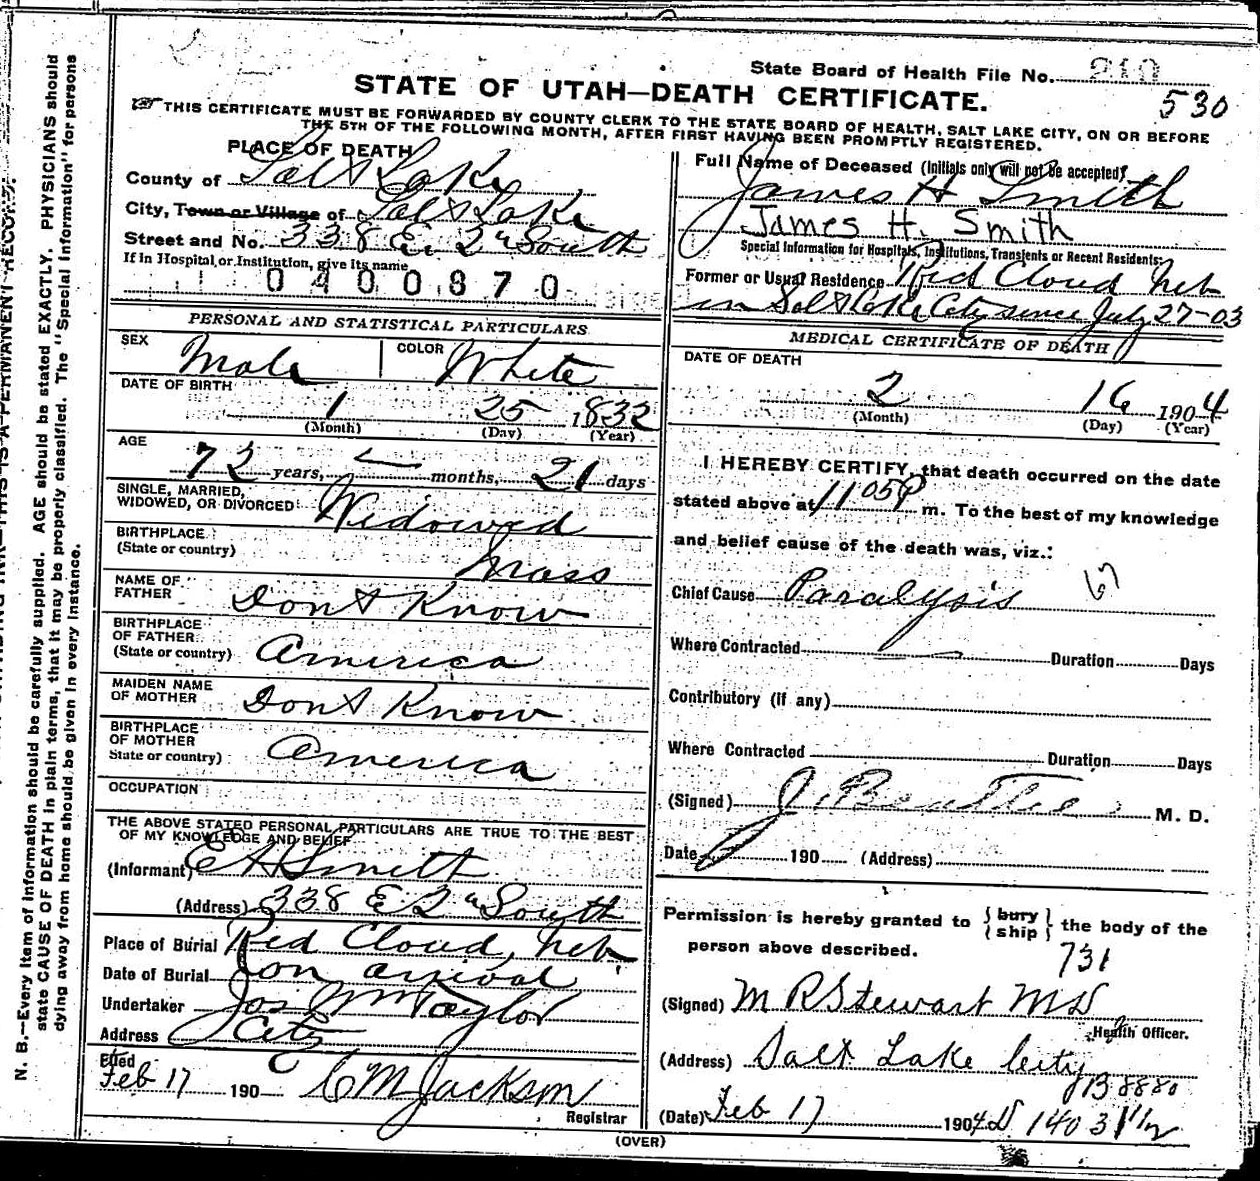 State Board of Health File No. 210
530
STATE OF UTAH—DEATH CERTIFICATE.
THIS CERTIFICATE MUST BE FORWARDED BY COUNTY CLERK TO THE STATE BOARD OF HEALTH, SALT LAKE CITY, ON OR BEFORE
THE 5TH OF THE FOLLOWING MONTH, AFTER FIRST HAVING BEEN PROMPTLY REGISTERED.
PLACE OF DEATH
County of Salt Lake
City, Town or Village of Salt Lake
Street and No. 338 E. 2nd South
If in Hospital or Institution, give its name
0400870
PERSONAL AND STATISTICAL PARTICULARS
SEX Male COLOR White
DATE OF BIRTH
1 25 1832
(Month) (Day) (Year)
AGE
72 years, — months, 21 days
SINGLE, MARRIED,
WIDOWED, OR DIVORCED Widowed
BIRTHPLACE
(State or country) Mass
NAME OF
FATHER Dont Know
BIRTHPLACE
OF FATHER
(State or country) America
MAIDEN NAME
OF MOTHER Dont Know
BIRTHPLACE
OF MOTHER
State or country) America
OCCUPATION
THE ABOVE STATED PERSONAL PARTICULARS ARE TRUE TO THE BEST
OF MY KNOWLEDGE AND BELIEF
(Informant) E A Smith
(Address) 338 E 2nd South
Place of Burial Red Cloud, Neb.
Date of Burial on arrival
Undertaker Jos Wm Taylor
Address City
Filed
Feb 17 190 C M Jackson
Registrar
Full Name of Deceased (Initials only will not be accepted)
James H Smith
James H. Smith
Special Information for Hospitals, Institutions, Transients or Recent Residents:
Former or Usual Residence Red Cloud Neb
in Salt Lake City since July 27-03
MEDICAL CERTIFICATE OF DEATH
DATE OF DEATH
2 16 1904
(Month) (Day) (Year)
I HEREBY CERTIFY, that death occurred on the date
stated above at 11 05 P m. To the best of my knowledge
and belief cause of the death was, viz.:
Chief Cause Paralysis 67
Where Contracted — Duration Days
Contributory (if any)
Where Contracted Duration Days
(Signed) J. Beattie M. D.
Date 190 (Address)
Permission is hereby granted to {bury
ship} the body of the
person above described.
731
(Signed) M R Stewart MD
Health Officer.
(Address) Salt Lake City
B 8880
(Date) Feb 17 1904 D 140 3 1 1/2
(OVER)
N. B.—Every item of information should be carefully supplied. AGE should be stated EXACTLY. PHYSICIANS should
state CAUSE OF DEATH in plain terms, that it may be properly classified. The "Special Information" for persons
dying away from home should be given in every instance.